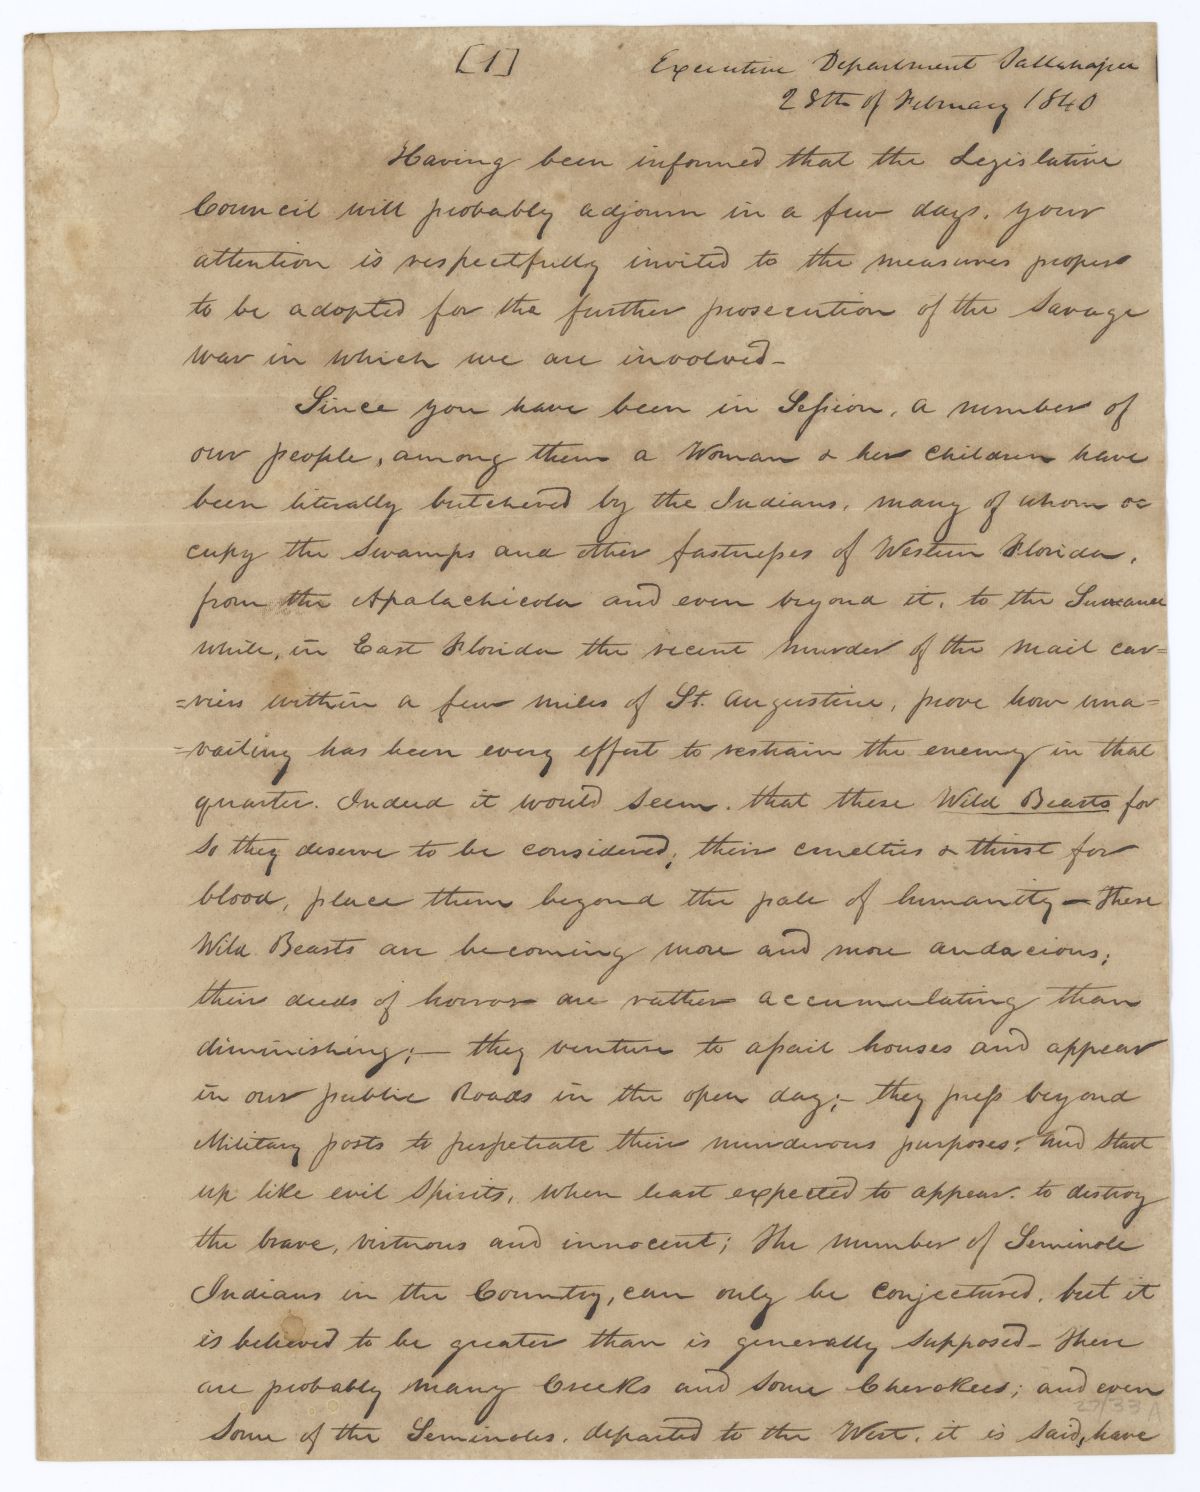 [1]
Executive Department Tallahassee
28th of February 1840
Having been informed that the Legislative
Council will probably adjourn in a few days, your
attention is respectfully invited to the measures proper
to be adopted for the further prosecution of the Savage
war in which we are involved-
Since you have been in Session, a number of
our people, among them a Woman & her children have
been literally butchered by the Indians, many of whom oc
cupy the Swamps and other fastnesses of Western Florida,
from the Apalachicola and even beyond it, to the Suwanee
while, in East Florida the recent murder of the mail car=
=riers within a few miles of St. Augustine, prove how una=
=vailing has been every effort to restrain the enemy in that
quarter. Indeed it would seem, that these Wild Beasts for
so they deserve to be considered; their cruelties & thirst for
blood, place them beyond the pale of humanity - These
Wild Beasts are becoming more and more audacious;
their deeds of horror are rather accumulating than
diminishing; - they venture to assail houses and appear
in our public Roads in the open day; - they press beyond
Military posts to perpetrate their murderous purposes; and start
up like evil Spirits, when least expected to appear, to destroy
the brave, virtuous and innocent; The number of Seminole
Indians in the Country, can only be conjectured, but it
is believed to be greater than is generally supposed - There
are probably many Creeks and some Cherokees; and even
27/33 A
some of the Seminoles, departed to the West, it is said, have